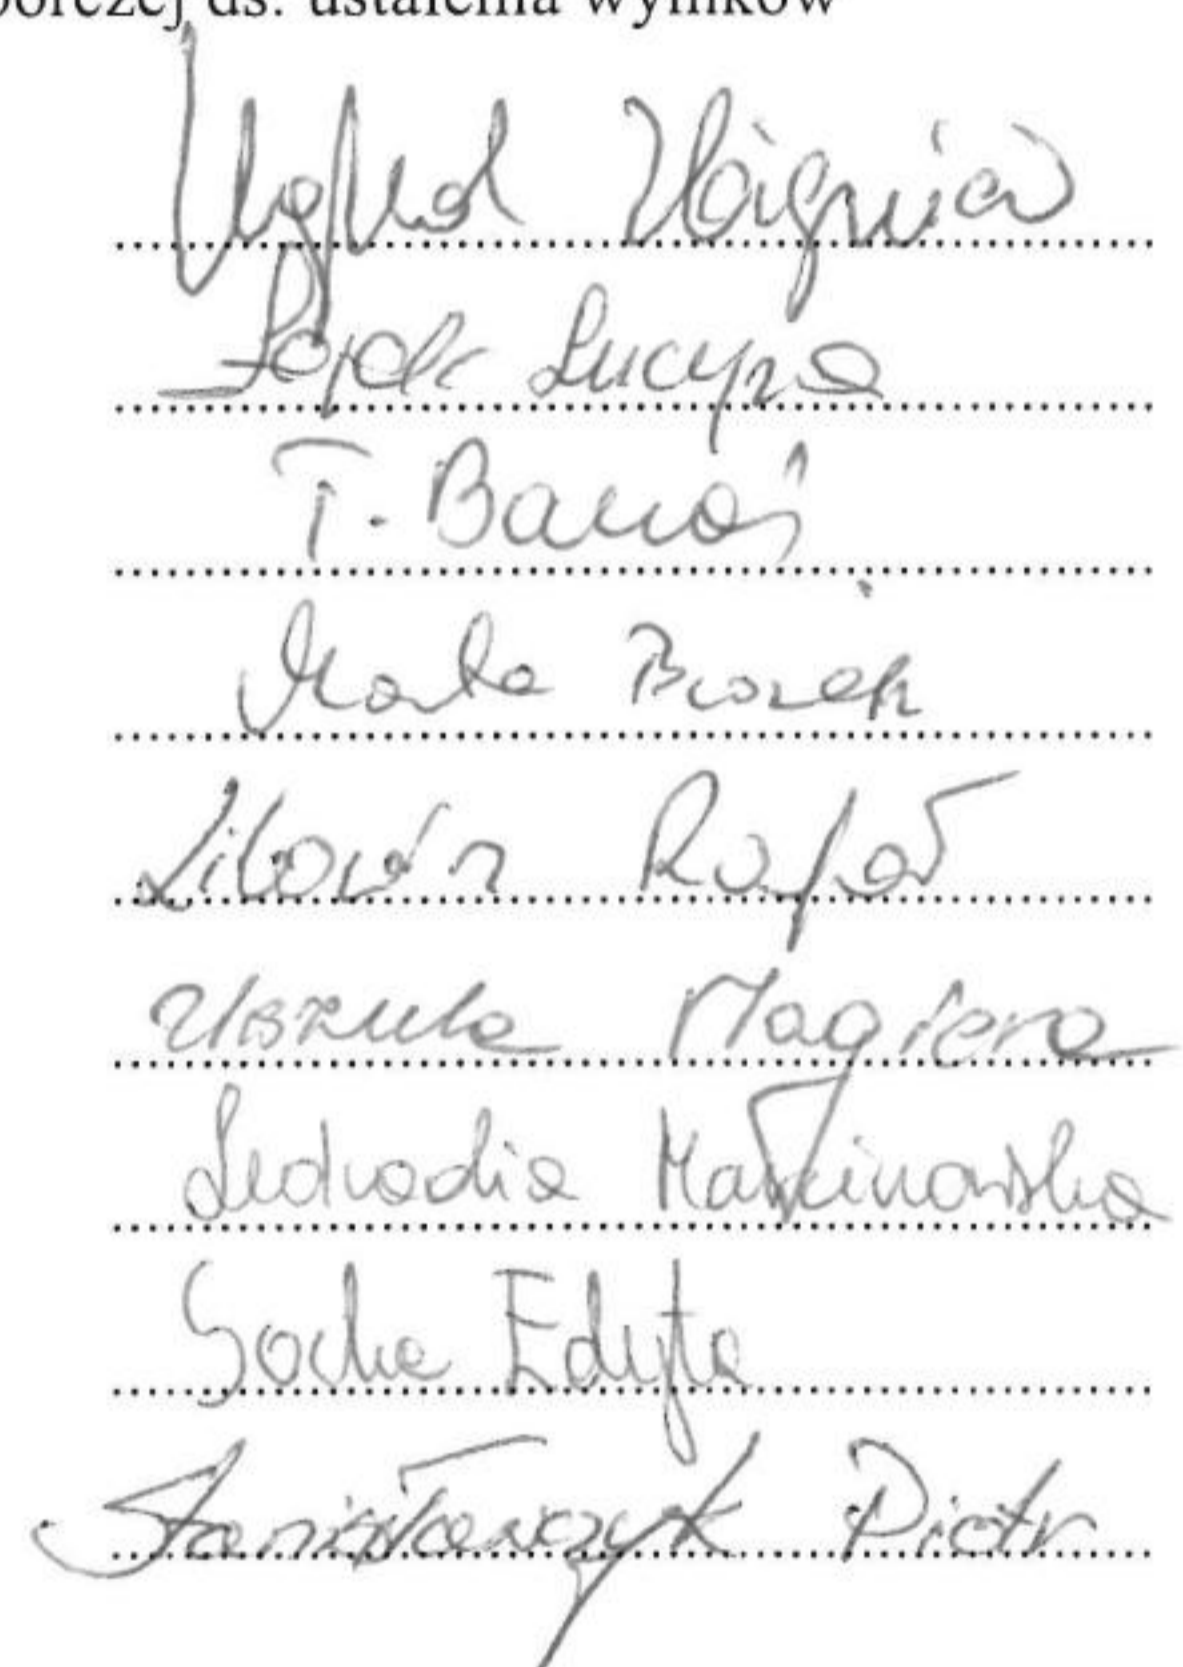 ds. ustalenia wyników
Zbigniew
Lucyna
T. Banaś
Marta Brożek
Litowin Rafał
Urszula Magiera
Leokadia Marcinowska
Socha Edyta
Stanisławczyk Piotr